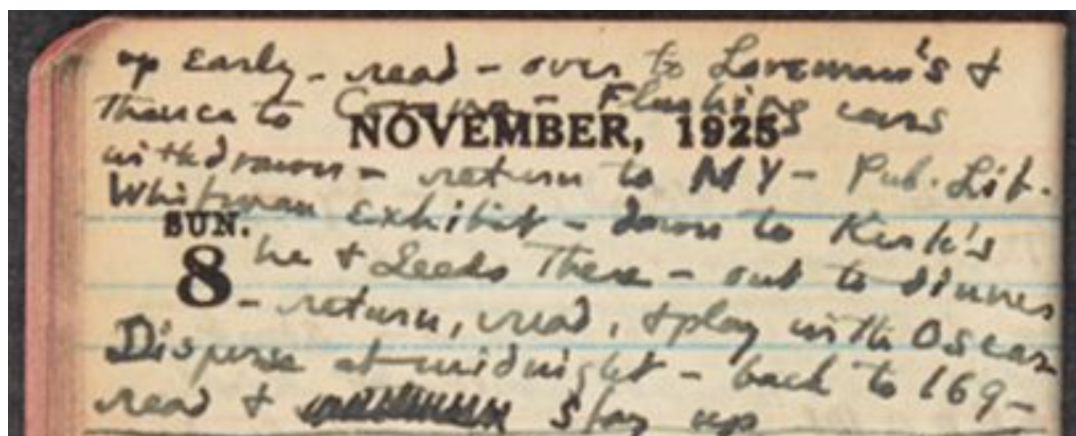 up early – read – over to Loveman's &
thence to Corona – Flushing cars
NOVEMBER, 1925
withdrawn – return to NY – Pub. Lib.
Whitman exhibit – down to Kirk's
SUN.
he & Leeds there – out to dinner
8
– return, read, & play with Oscar
Disperse at midnight – back to 169 –
read & stay up